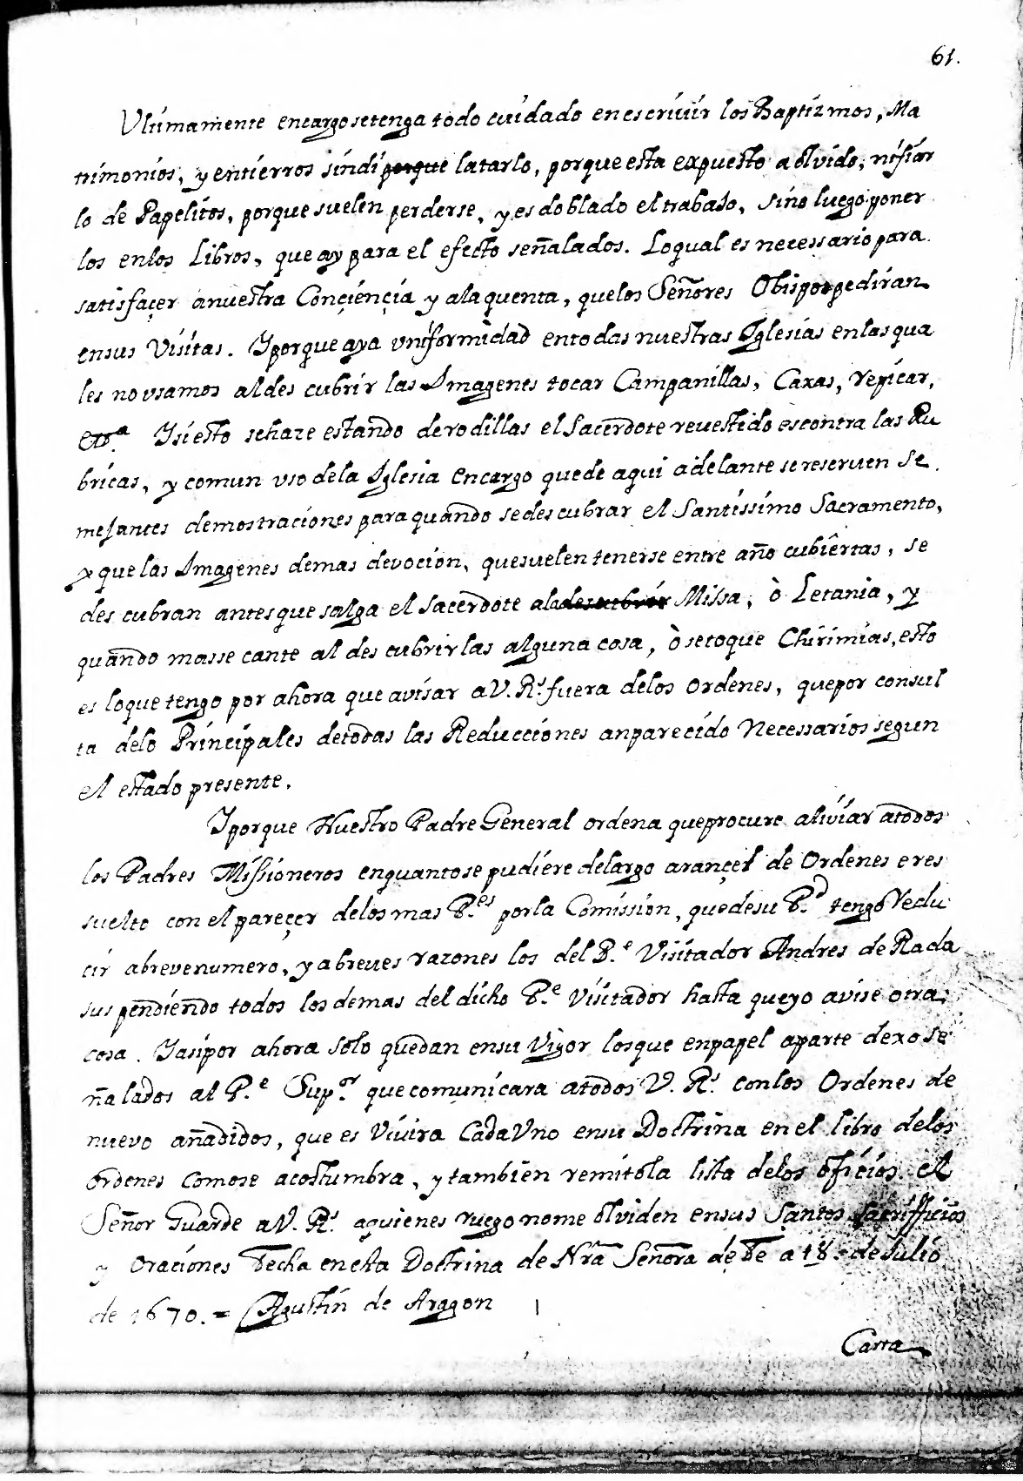 61.
Ultimamente encargo se tenga todo cuidado en escriuir los Baptizmos, Ma
trimonios, y entierros sin di latarlo, porque esta expuesto a olvido, ni fiar
lo de Papelitos, porque suelen perderse, y es doblado el trabajo, sino luego poner
los en los Libros, que ay para el efecto señalados. Loqual es necessario para
satisfaçer a nuestra Conçiençia y a la quenta, que los Señores Obispos pediran
en sus Visitas. Y porque aya vniformidad en todas nuestras Iglesias en las qua
les no vsamos al des cubrir las Imagenes tocar Campanillas, Caxas, repicar,
Etcª. Y si esto se haze estando de rodillas el Sacerdote revestido es contra las Ru
bricas, y comun vso de la Iglesia encargo que de aqui adelante se reseruen se
mejantes demostraciones para quando se descubrar el Santissimo Sacramento,
y que las Imagenes de mas devocion, que suelen tenerse entre año cubiertas, se
des cubran antes que salga el sacerdote a la Missa, ò Letania, y
quando mas se cante al des cubrir las alguna cosa, ò se toque Chirimias, esto
es lo que tengo por ahora que avisar a V. Rˢ. fuera de los ordenes, que por consul
ta delo Principales de todas las Reducciones an parecido Necessarios segun
el estado presente.
Y porque Nuestro Padre General ordena que procure aliviar a todos
los Padres Missioneros en quanto se pudiere del largo arançel de Ordenes e res
suelto con el pareçer de los mas P.ᵉˢ por la Comission, que de su P.ᵈ tengo Redu
cir a breve numero, y a breues razones los del P.ᵉ Visitador Andres de Rada
suspendiendo todos los demas del dicho P.ᵉ Visitador hasta que yo avise otra
cosa. Y asi por ahora solo quedan en su Vigor los que en papel aparte dexo se
ñalados al P.ᵉ Sup.ᵒʳ que comunicara a todos V. Rˢ. con los Ordenes de
nuevo añadidos, que es Vivira Cada Vno en su Doctrina en el libro de los
ordenes como se acostumbra, y tambien remito la lista de los oficios. el
Señor Guarde a V. Rˢ. a quienes ruego no me olviden en sus Santos Sacrifficios
y Oraciones Fecha en esta Doctrina de Nrã Señora de Fe a 18. de Julio
de 1670. = Agustin de Aragon
Carta